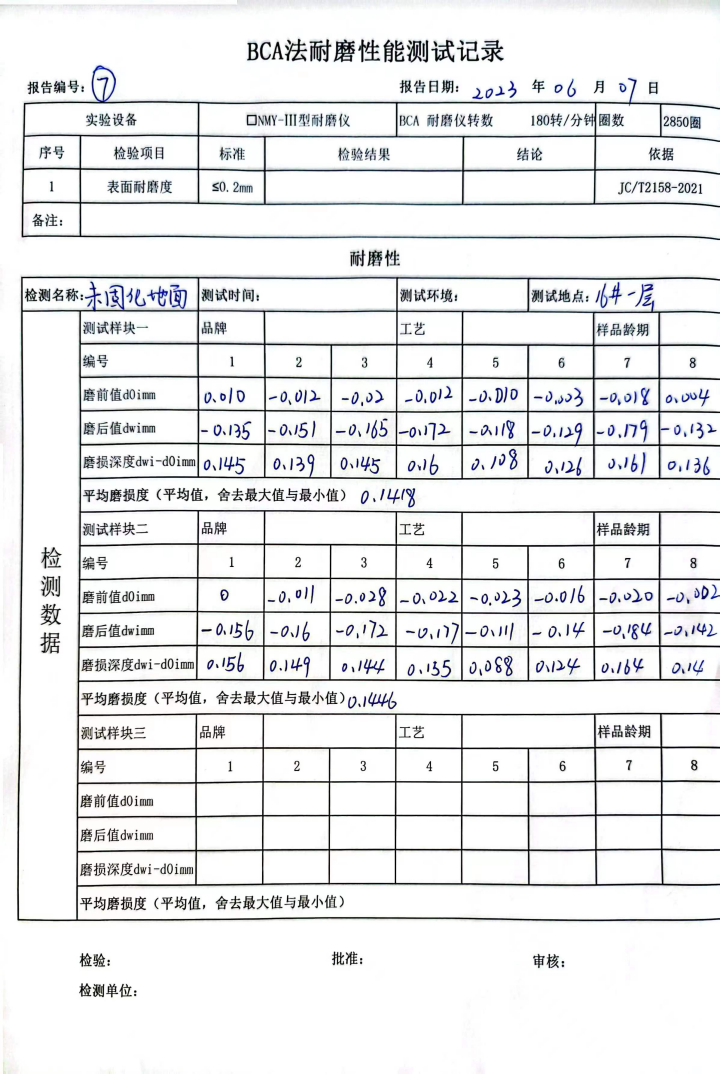 BCA法耐磨性能测试记录
报告编号：⑦ 报告日期：2023 年 06 月 07 日
实验设备 □NMY-III型耐磨仪 BCA 耐磨仪转数 180转/分钟 圈数 2850圈
序号 检验项目 标准 检验结果 结论 依据
1 表面耐磨度 ≤0.2mm JC/T2158-2021
备注：
耐磨性
检测名称：未固化地面 测试时间： 测试环境： 测试地点：16#一层
检测数据
测试样块一 品牌 工艺 样品龄期
编号 1 2 3 4 5 6 7 8
磨前值d0imm 0.010 -0.012 -0.02 -0.012 -0.010 -0.003 -0.018 0.004
磨后值dwimm -0.135 -0.151 -0.165 -0.172 -0.118 -0.129 -0.179 -0.132
磨损深度dwi-d0imm 0.145 0.139 0.145 0.16 0.108 0.126 0.161 0.136
平均磨损度（平均值，舍去最大值与最小值） 0.1418
测试样块二 品牌 工艺 样品龄期
编号 1 2 3 4 5 6 7 8
磨前值d0imm 0 -0.011 -0.028 -0.022 -0.023 -0.016 -0.020 -0.002
磨后值dwimm -0.156 -0.16 -0.172 -0.177 -0.111 -0.14 -0.184 -0.142
磨损深度dwi-d0imm 0.156 0.149 0.144 0.155 0.088 0.124 0.164 0.14
平均磨损度（平均值，舍去最大值与最小值）0.1446
测试样块三 品牌 工艺 样品龄期
编号 1 2 3 4 5 6 7 8
磨前值d0imm
磨后值dwimm
磨损深度dwi-d0imm
平均磨损度（平均值，舍去最大值与最小值）
检验： 批准： 审核：
检测单位：